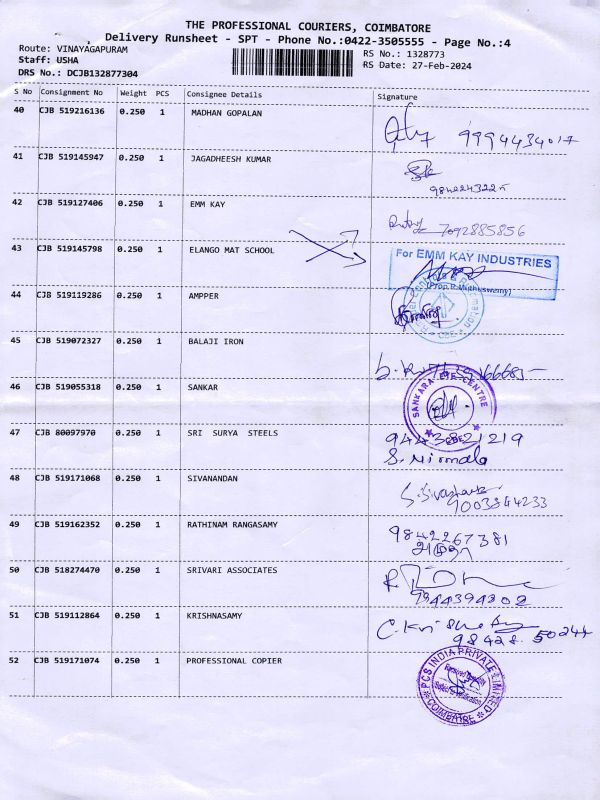 THE PROFESSIONAL COURIERS, COIMBATORE
Delivery Runsheet - SPT - Phone No.:0422-3505555 - Page No.:4
Route: VINAYAGAPURAM RS No.: 1328773
Staff: USHA RS Date: 27-Feb-2024
DRS No.: DCJB132877304
S No Consignment No Weight PCS Consignee Details Signature
40 CJB 519216136 0.250 1 MADHAN GOPALAN
9994434017
41 CJB 519145947 0.250 1 JAGADHEESH KUMAR
42 CJB 519127406 0.250 1 EMM KAY
7092885856
43 CJB 519145798 0.250 1 ELANGO MAT SCHOOL
For EMM KAY INDUSTRIES
(Prop.R.Muthuswamy)
44 CJB 519119286 0.250 1 AMPPER
45 CJB 519072327 0.250 1 BALAJI IRON
46 CJB 519055318 0.250 1 SANKAR
SANKARA EYE CENTRE
47 CJB 80097970 0.250 1 SRI SURYA STEELS
9443821219
S. Nirmala
48 CJB 519171068 0.250 1 SIVANANDAN
9003844233
49 CJB 519162352 0.250 1 RATHINAM RANGASAMY
9842267381
50 CJB 518274470 0.250 1 SRIVARI ASSOCIATES
9944394302
51 CJB 519112864 0.250 1 KRISHNASAMY
98428 50244
52 CJB 519171074 0.250 1 PROFESSIONAL COPIER
PCS INDIA PRIVATE LIMITED
COIMBATORE